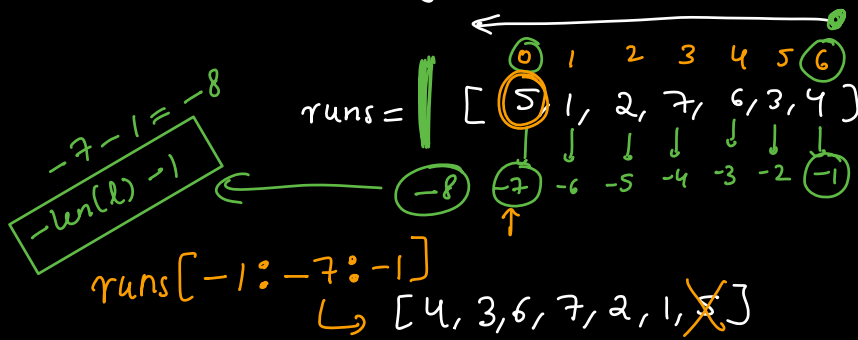 0 1 2 3 4 5 6
runs = [ 5, 1, 2, 7, 6, 3, 4 ]
-8 -7 -6 -5 -4 -3 -2 -1
-7-1 = -8
-len(l) -1
runs[-1:-7:-1]
[4, 3, 6, 7, 2, 1, 5]